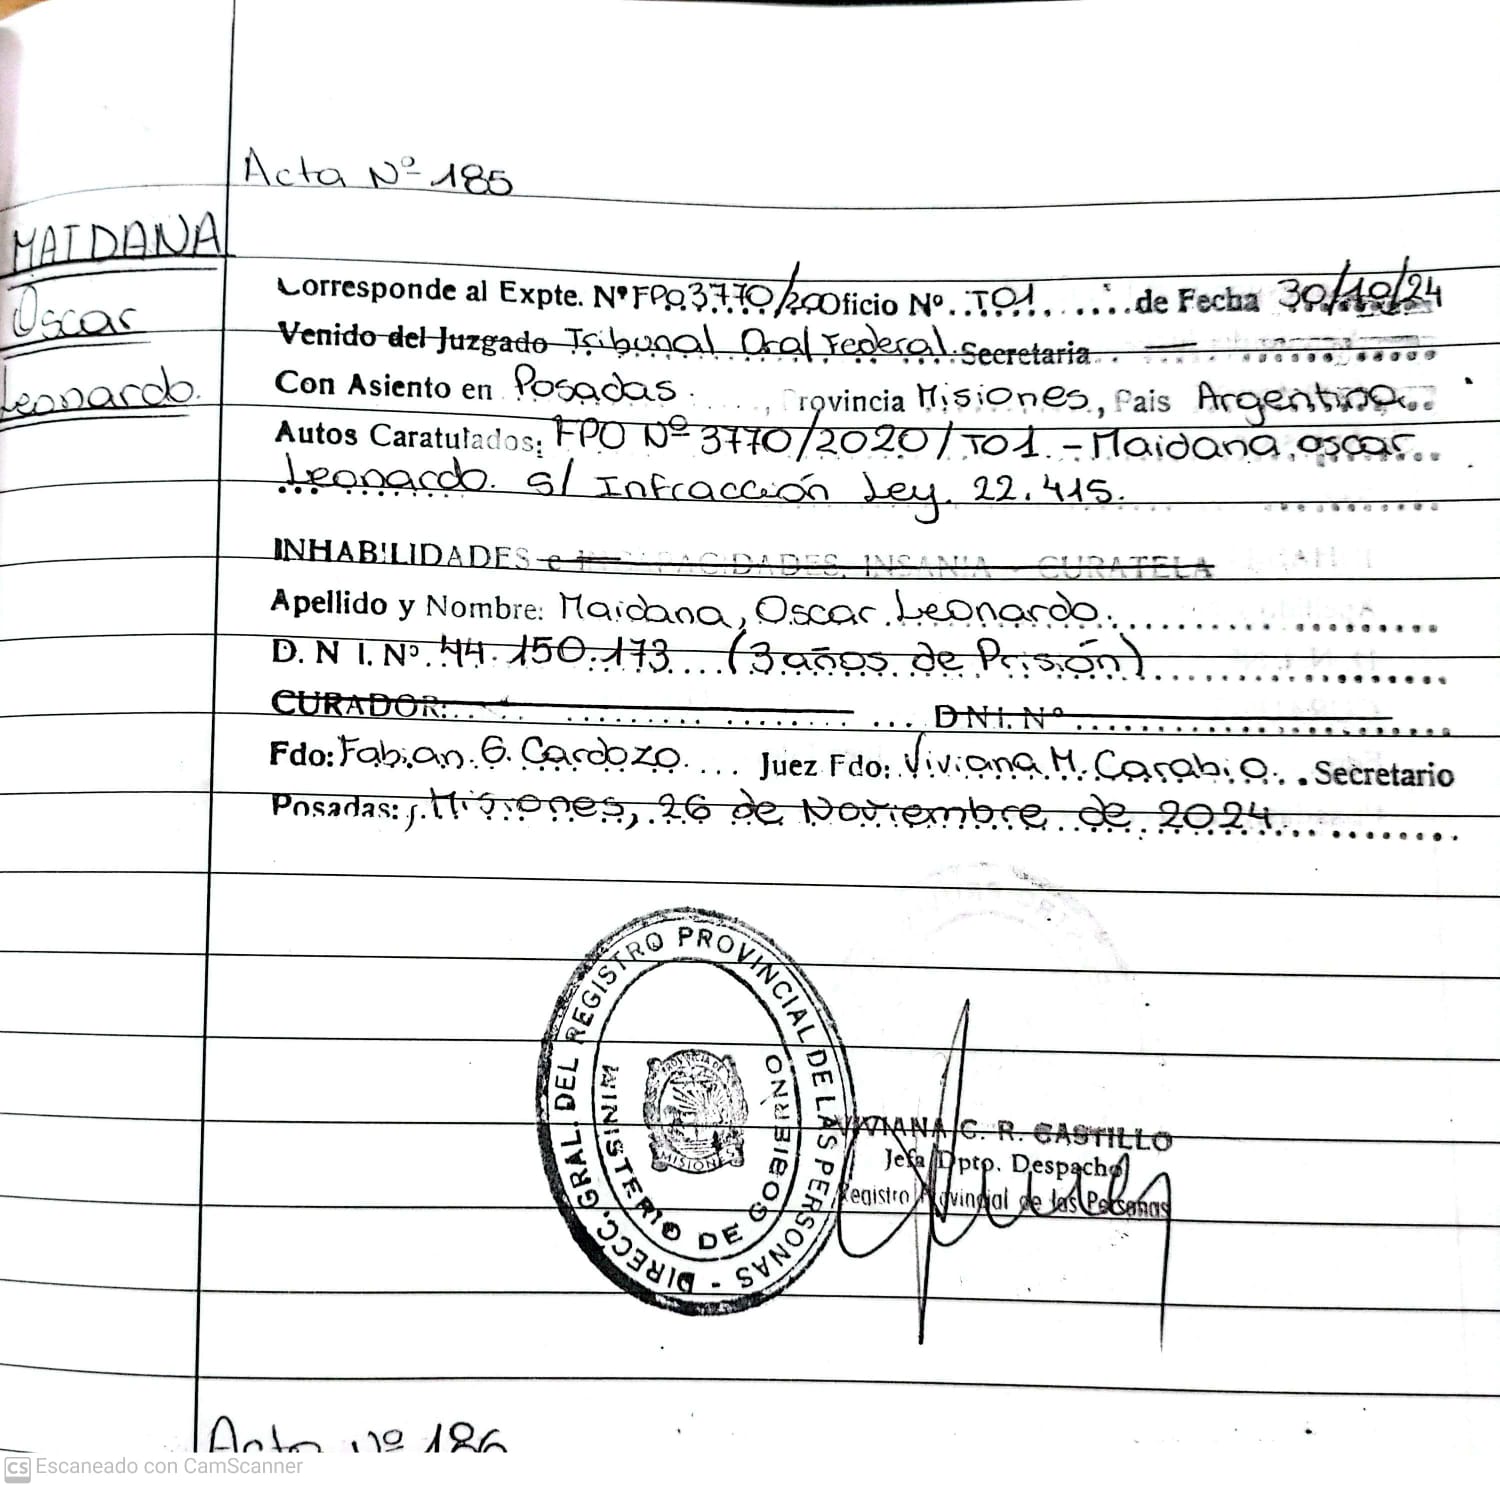 Acta Nº 185
MAIDANA
Oscar
Leonardo.
Corresponde al Expte. Nº FPO 3770/20 Oficio Nº. TO1. de Fecha 30/10/24
Venido del Juzgado Tribunal Oral Federal. Secretaria
Con Asiento en Posadas , Provincia Misiones, Pais Argentina
Autos Caratulados: FPO Nº 3770/2020/TO1. - Maidana Oscar
Leonardo. s/ Infracción Ley. 22.415.
INHABILIDADES e INCAPACIDADES, INSANIA - CURATELA
Apellido y Nombre: Maidana, Oscar Leonardo.
D. N I. Nº. 44.150.173 (3 años de Prisión)
CURADOR: DNI. Nº
Fdo: Fabian. G. Cardozo. Juez Fdo: Viviana M. Carabio. Secretario
Posadas: Misiones, 26 de Noviembre de 2024
DIRECC. GRAL. DEL REGISTRO PROVINCIAL DE LAS PERSONAS -
MINISTERIO DE GOBIERNO
PROVINCIA DE
MISIONES
VIVIANA C. R. CASTILLO
Jefa Dpto. Despacho
Registro Provincial de las Personas
Acta Nº 186
CS Escaneado con CamScanner